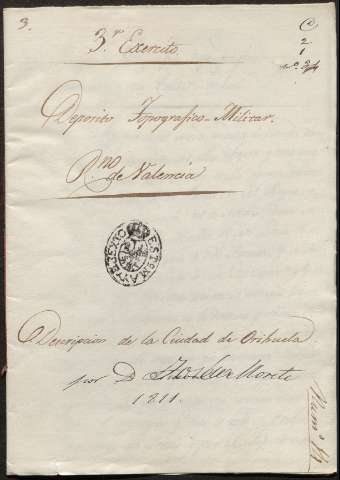 3.
3.r Exercito
C
2
1
n.o 3/4
Deposito Topografico-Militar.
R.no de Valencia
Descripcion de la Ciudad de Orihuela
por D.
1811.
Num.o